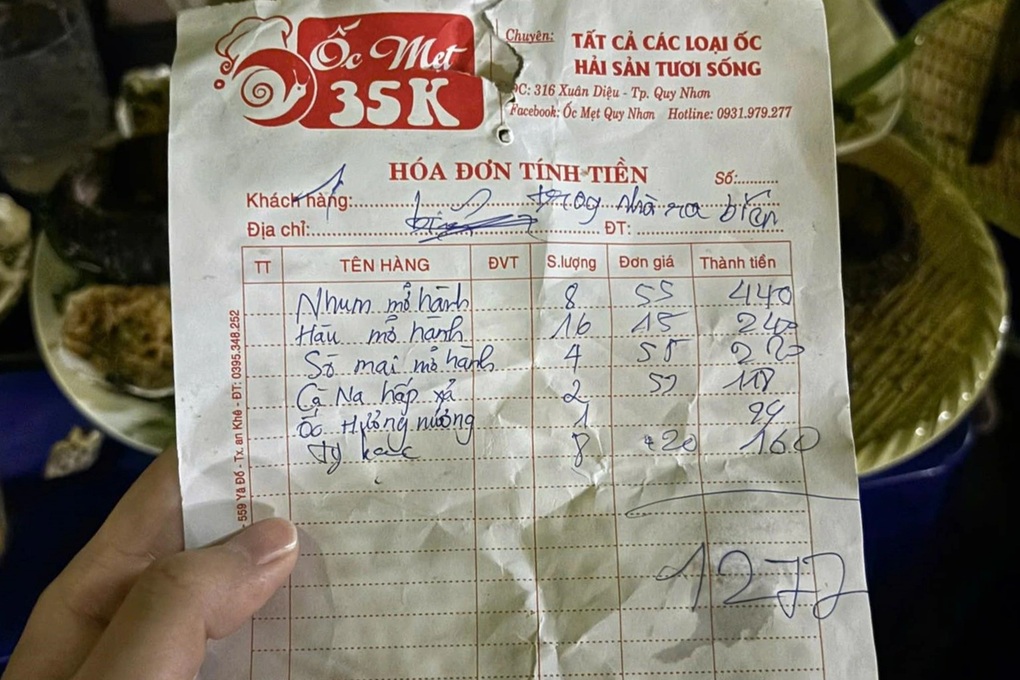 Ốc Mẹt
35K
Chuyên: TẤT CẢ CÁC LOẠI ỐC
HẢI SẢN TƯƠI SỐNG
ĐC: 316 Xuân Diệu - Tp. Quy Nhơn
Facebook: Ốc Mẹt Quy Nhơn Hotline: 0931.979.277
HÓA ĐƠN TÍNH TIỀN
Số:
Khách hàng: trong nhà ra biển
Địa chỉ: ĐT:
TT TÊN HÀNG ĐVT S.lượng Đơn giá Thành tiền
Nhum mỡ hành 8 55 440
Hàu mỡ hành 16 15 240
Sò mai mỡ hành 4 55 220
Cà Na hấp xả 2 59 118
Ốc Hương nướng 1 99
8 20 160
1277
559 Yã Đố - Tx. an Khê - ĐT: 0395.348.252